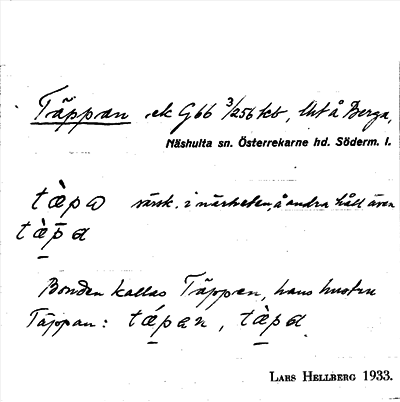 Täppan, ek G66 3/256 kb, Ut å Berga,
Näshulta sn. Österrekarne hd. Söderm. l.
tæ̀pa särsk. i närheten, å andra håll även
tæ̀p̄a
Bonden kallas Täppan, hans hustru
Täppan: tǽpan, tæ̀pa.
Lars Hellberg 1933.